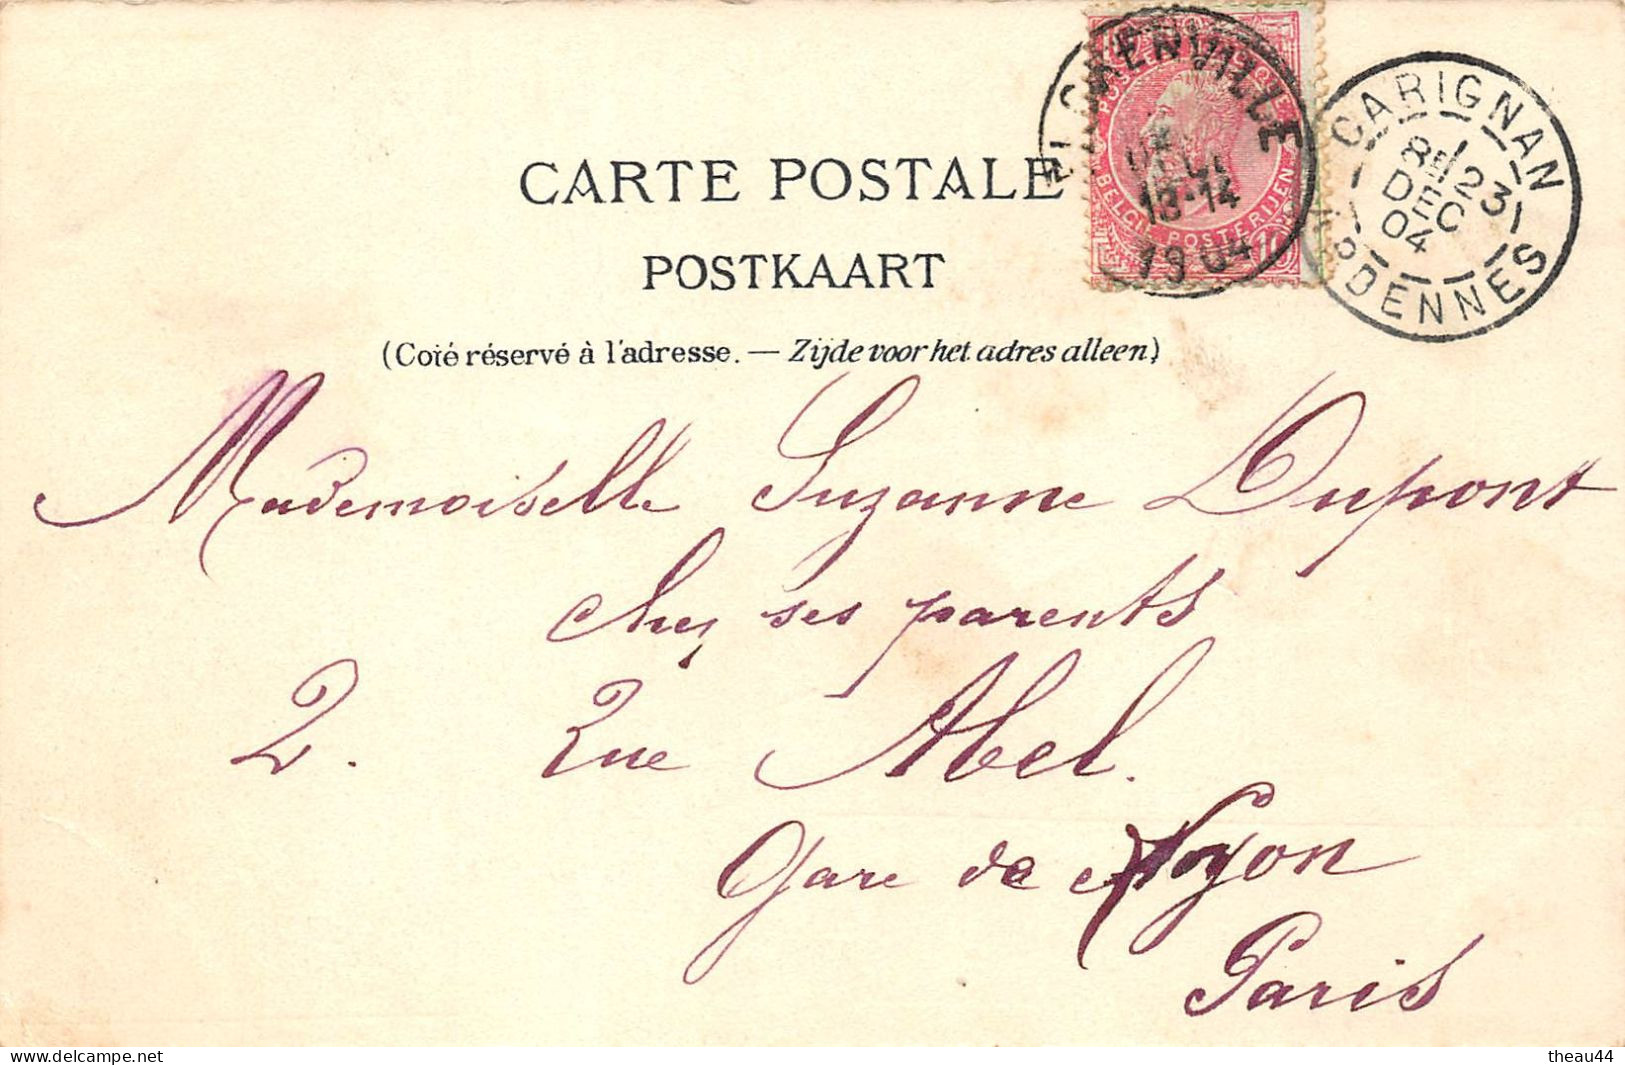 CARTE POSTALE
POSTKAART
(Coté réservé à l'adresse. — Zijde voor het adres alleen)
FLORENVILLE
13-14
1904
POSTES BELGIQUE
BELGIË POSTERIJEN
10
CARIGNAN
8E 23
DEC
04
ARDENNES
Mademoiselle Suzanne Dupont
chez ses parents
2. Rue Abel.
Gare de Lyon
Paris
theau44